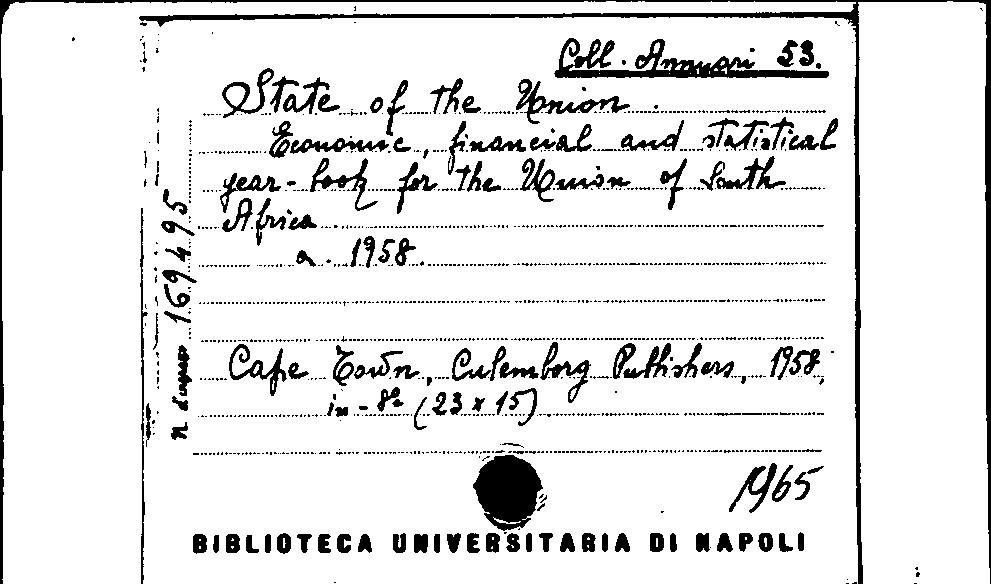 Coll. Annuari 53.
State of the Union.
Economic, financial and statistical
year-book for the Union of South
Africa.
a. 1958.
N. d'ingresso 169495
Cape Town, Culemborg Publishers, 1958,
in-8º (23 x 15)
1965
BIBLIOTECA UNIVERSITARIA DI NAPOLI